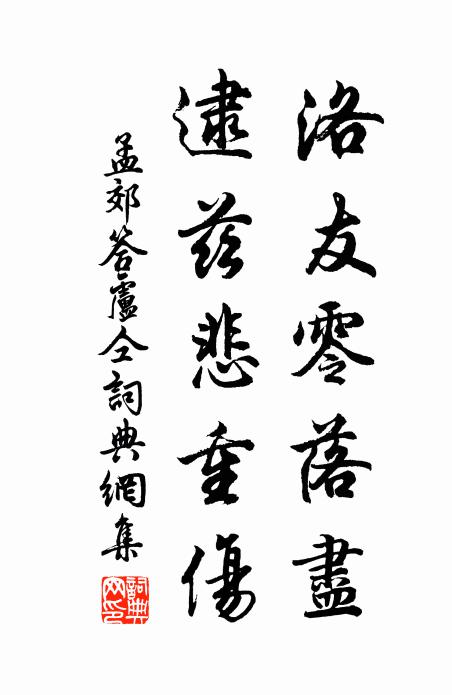 洛友零落盡
逮兹悲重傷
孟郊答盧仝詞典網集
詞典網印